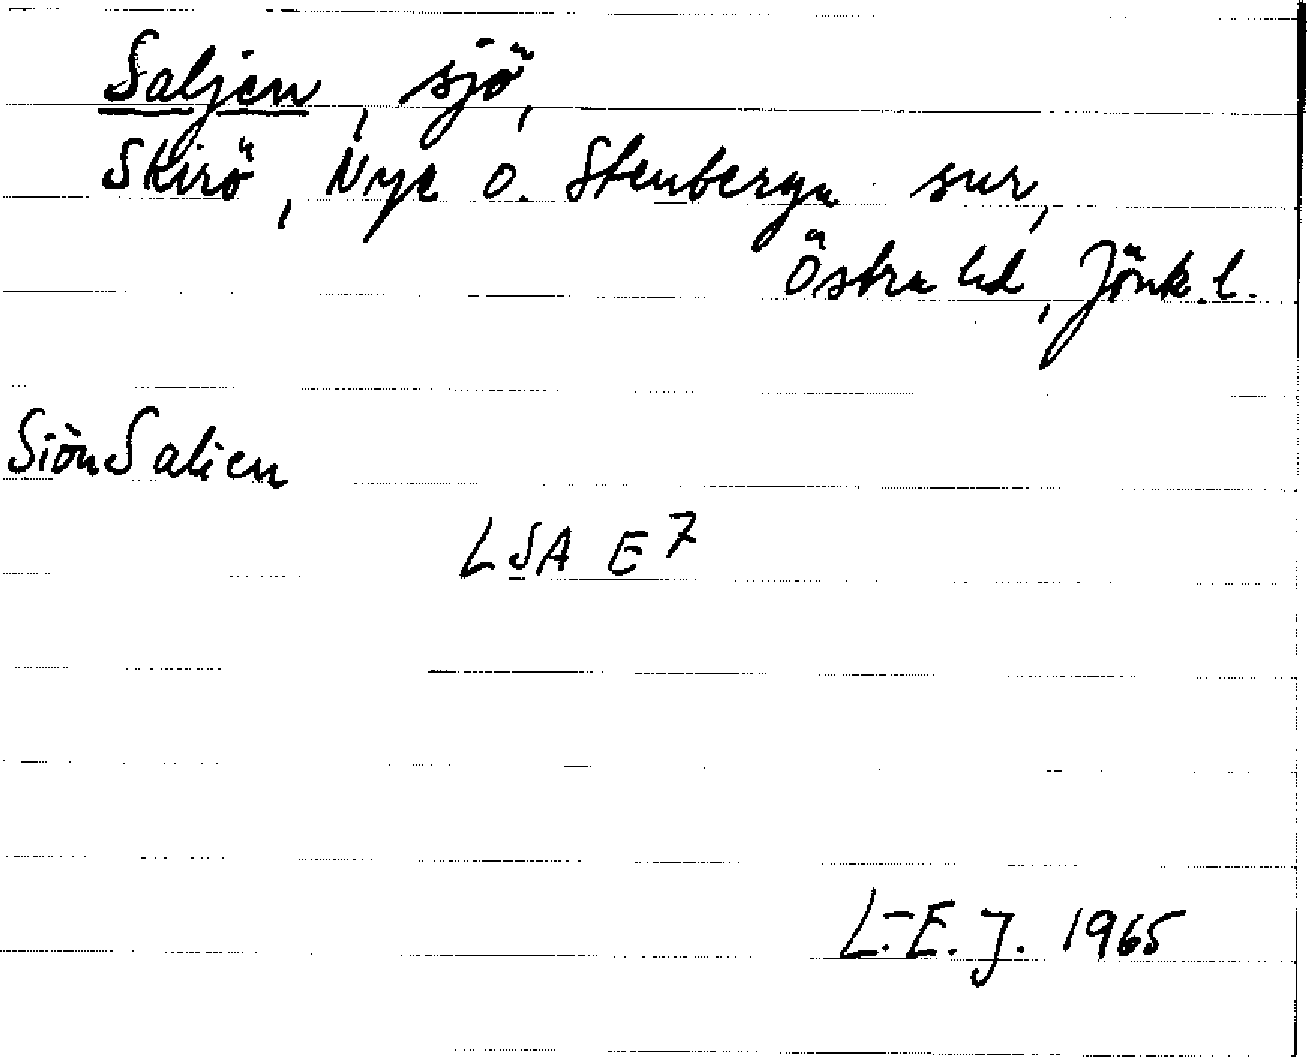 Saljen, sjö,
Skirö, Nye o. Stenberga snr,
Östra hd, Jönk. l.
Siön Salien
LSA E7
L.-E. J. 1965